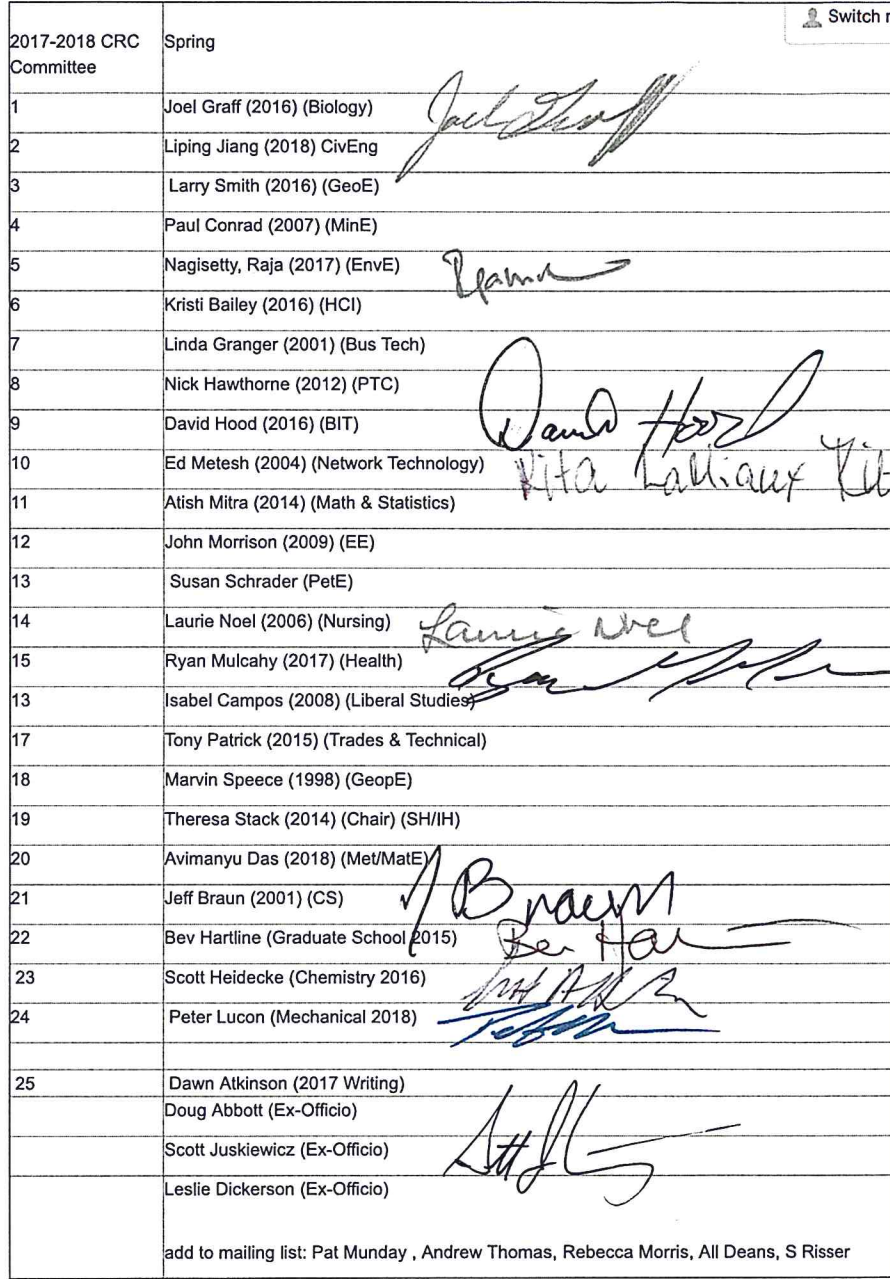 Switch r
2017-2018 CRC Committee Spring
1 Joel Graff (2016) (Biology) Joel Graff
2 Liping Jiang (2018) CivEng
3 Larry Smith (2016) (GeoE)
4 Paul Conrad (2007) (MinE)
5 Nagisetty, Raja (2017) (EnvE)
6 Kristi Bailey (2016) (HCI)
7 Linda Granger (2001) (Bus Tech)
8 Nick Hawthorne (2012) (PTC)
9 David Hood (2016) (BIT) David Hood
10 Ed Metesh (2004) (Network Technology) Rita
11 Atish Mitra (2014) (Math & Statistics)
12 John Morrison (2009) (EE)
13 Susan Schrader (PetE)
14 Laurie Noel (2006) (Nursing) Laurie Noel
15 Ryan Mulcahy (2017) (Health)
13 Isabel Campos (2008) (Liberal Studies)
17 Tony Patrick (2015) (Trades & Technical)
18 Marvin Speece (1998) (GeopE)
19 Theresa Stack (2014) (Chair) (SH/IH)
20 Avimanyu Das (2018) (Met/MatE)
21 Jeff Braun (2001) (CS) J Braun
22 Bev Hartline (Graduate School 2015) Bev Har
23 Scott Heidecke (Chemistry 2016)
24 Peter Lucon (Mechanical 2018)
25 Dawn Atkinson (2017 Writing)
Doug Abbott (Ex-Officio)
Scott Juskiewicz (Ex-Officio)
Leslie Dickerson (Ex-Officio)
add to mailing list: Pat Munday , Andrew Thomas, Rebecca Morris, All Deans, S Risser